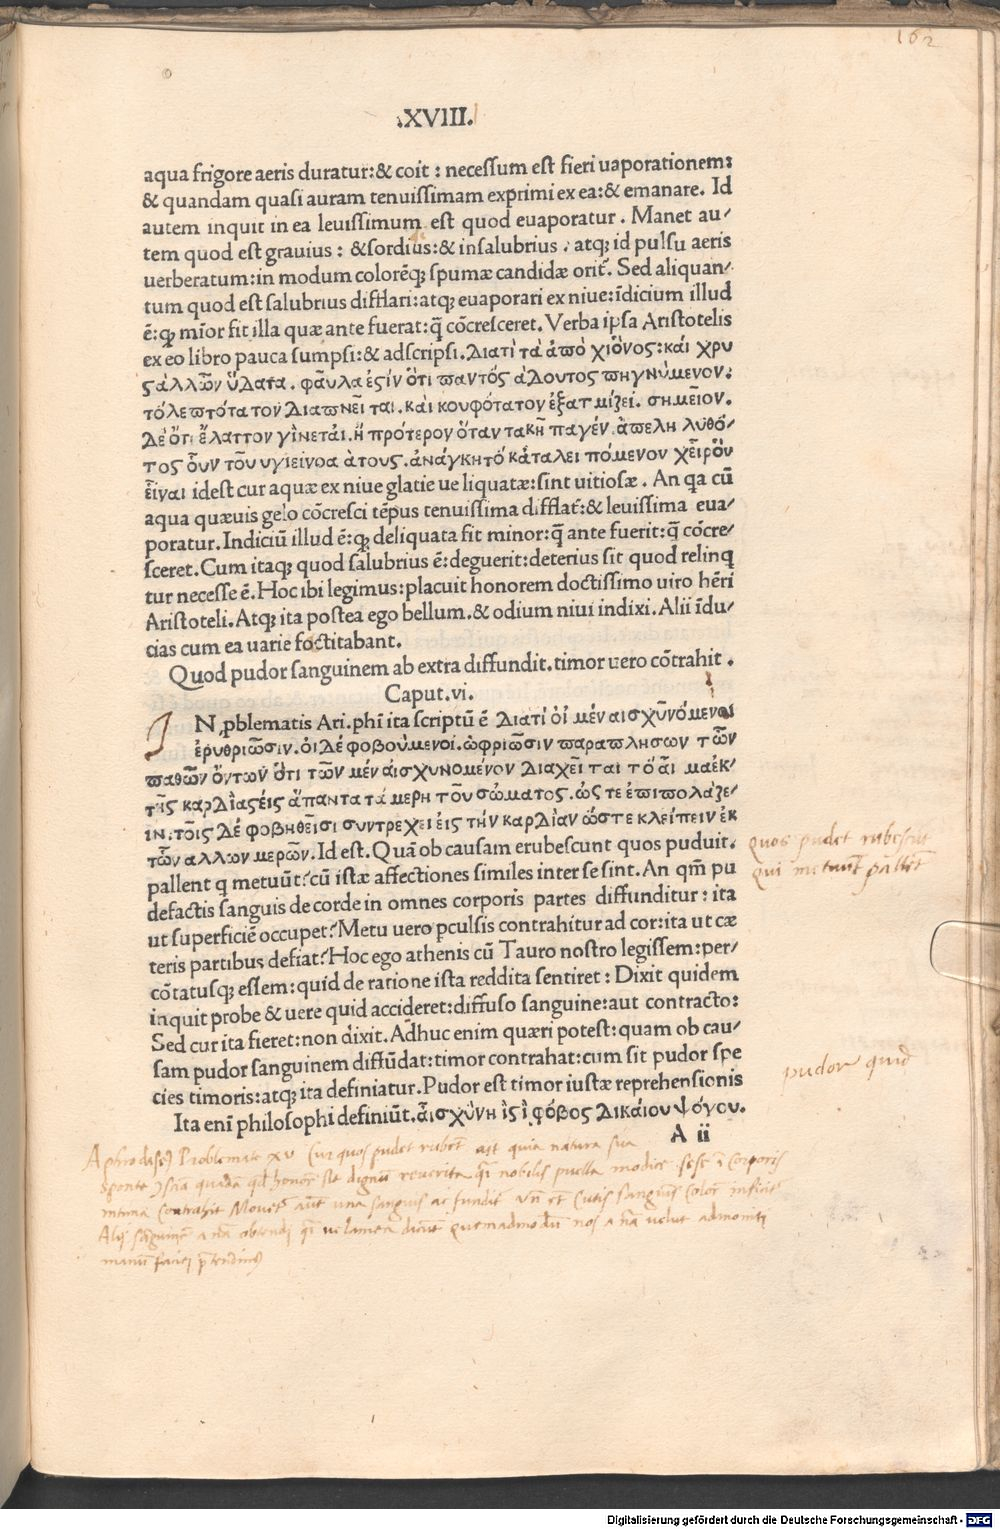 162
.XVIII.
aqua frigore aeris duratur:& coit : necessum est fieri uaporationem:
& quandam quasi auram tenuissimam exprimi ex ea:& emanare. Id
autem inquit in ea leuissimum est quod euaporatur . Manet au/
tem quod est grauius : &sordius:& insalubrius : atq; id pulsu aeris
uerberatum:in modum colorēq; spumæ candidæ orit᷑. Sed aliquan/
tum quod est salubrius difflari:atq; euaporari ex niue:īdicium illud
ē:q; mīor fit illa quæ ante fuerat:q̃ cōcresceret. Verba ipsa Aristotelis
ex eo libro pauca sumpsi:& adscripsi. Διατὶ τὰ ἀπὸ χιὸνος: κάι χρυ
ςάλλῶν ὕδατα. φᾶυλα ἐςίν ὅτι παντός ἁδουτος πηγνὺμενον:
τόλεπτότα τον Διαπνεῖ ται. κὰι κουφότατον ἐξατ μίζει. σημεῖον.
Δὲ ὅτι ἔλαττον γὶνετάι. ἢ πρότερον ὅταν τακῆ παγέν. ἀπελη λυθό/
τος οὖν τοῦ υγιεινοα ὰτους. ἀνάγκητό κάταλει πόμενον χεῖρὂυ
εἶναι idest cur aquæ ex niue glatie ue liquatæ:sint uitiosæ . An qa cū
aqua quæuis gelo cōcresci tēpus tenuissima difflat᷑:& leuissima eua/
poratur. Indiciū illud ē:q; deliquata fit minor:q̃ ante fuerit:q̃ cōcre/
sceret. Cum itaq; quod salubrius ē:deguerit:deterius sit quod relinq
tur necesse ē. Hoc ibi legimus:placuit honorem doctissimo uiro hēri
Aristoteli. Atq; ita postea ego bellum. & odium niui indixi. Alii īdu/
cias cum ea uarie foctitabant.
Quod pudor sanguinem ab extra diffundit. timor uero cōtrahit .
Caput.vi.
IN ꝓblematis Ari.phi ita scriptū ē Διατί ὁἰ μέν αισχῦνόμενοι
ἐρυθριῶσιν. ὁι Δέ φοβούμενοί. ὠφριῶσιν παραπλησων τῶν
παθῶν ὄντων ὅτι τῶν μέν ἀισχυνομένον Διαχεῖ ται τό ἇι μαέκ/
τῆς καρΔίαςέις ἅπαντα τά μερη τοῦ σώματος. ὡς τε ἐπιπολαζε/
ιν: τοῖς Δέ φοβηθεῖσι συντρεχει ἐις τήν καρΔίαν ὥστε κλείπειν ἐκ
τῶν αλλων μερῶν. Id est. Quā ob causam erubescunt quos puduit.
pallent q metuūt?cū istæ affectiones similes inter se sint. An qm̄ pu
defactis sanguis de corde in omnes corporis partes diffunditur : ita
ut superficiē occupet?Metu uero pculsis contrahitur ad cor:ita ut cæ
teris partibus defiat?Hoc ego athenis cū Tauro nostro legissem:per/
cōtatusq; essem:quid de ratione ista reddita sentiret : Dixit quidem
inquit probe & uere quid accideret:diffuso sanguine:aut contracto:
Sed cur ita fieret:non dixit. Adhuc enim quæri potest:quam ob cau/
sam pudor sanguinem diffūdat:timor contrahat:cum sit pudor spe
cies timoris:atq; ita definiatur. Pudor est timor iustæ reprehensionis
Ita enī philosophi definiūt. ἆισχύνη ἱςὶ φόβος Δικάιου ψόγου.
A ii
quos pudet rubescūt
qui metuūt pallēt
pudor quid
Aphrodiseꝰ Problemate xv Cur quos pudet rubēt est quia natura sua
sponte quādā honorē dignū reuerita nobilis puella modice sese ī corporis
intima contrahit Mouet aūt una sanguis ac fundit et cutis sanguinis colore inficit
Alij sanguinē a nā obtendi uelamen dicūt quemadmodū nos a nā uelut admoniti
manū faciei prętendimꝰ
Digitalisierung gefördert durch die Deutsche Forschungsgemeinschaft - DFG